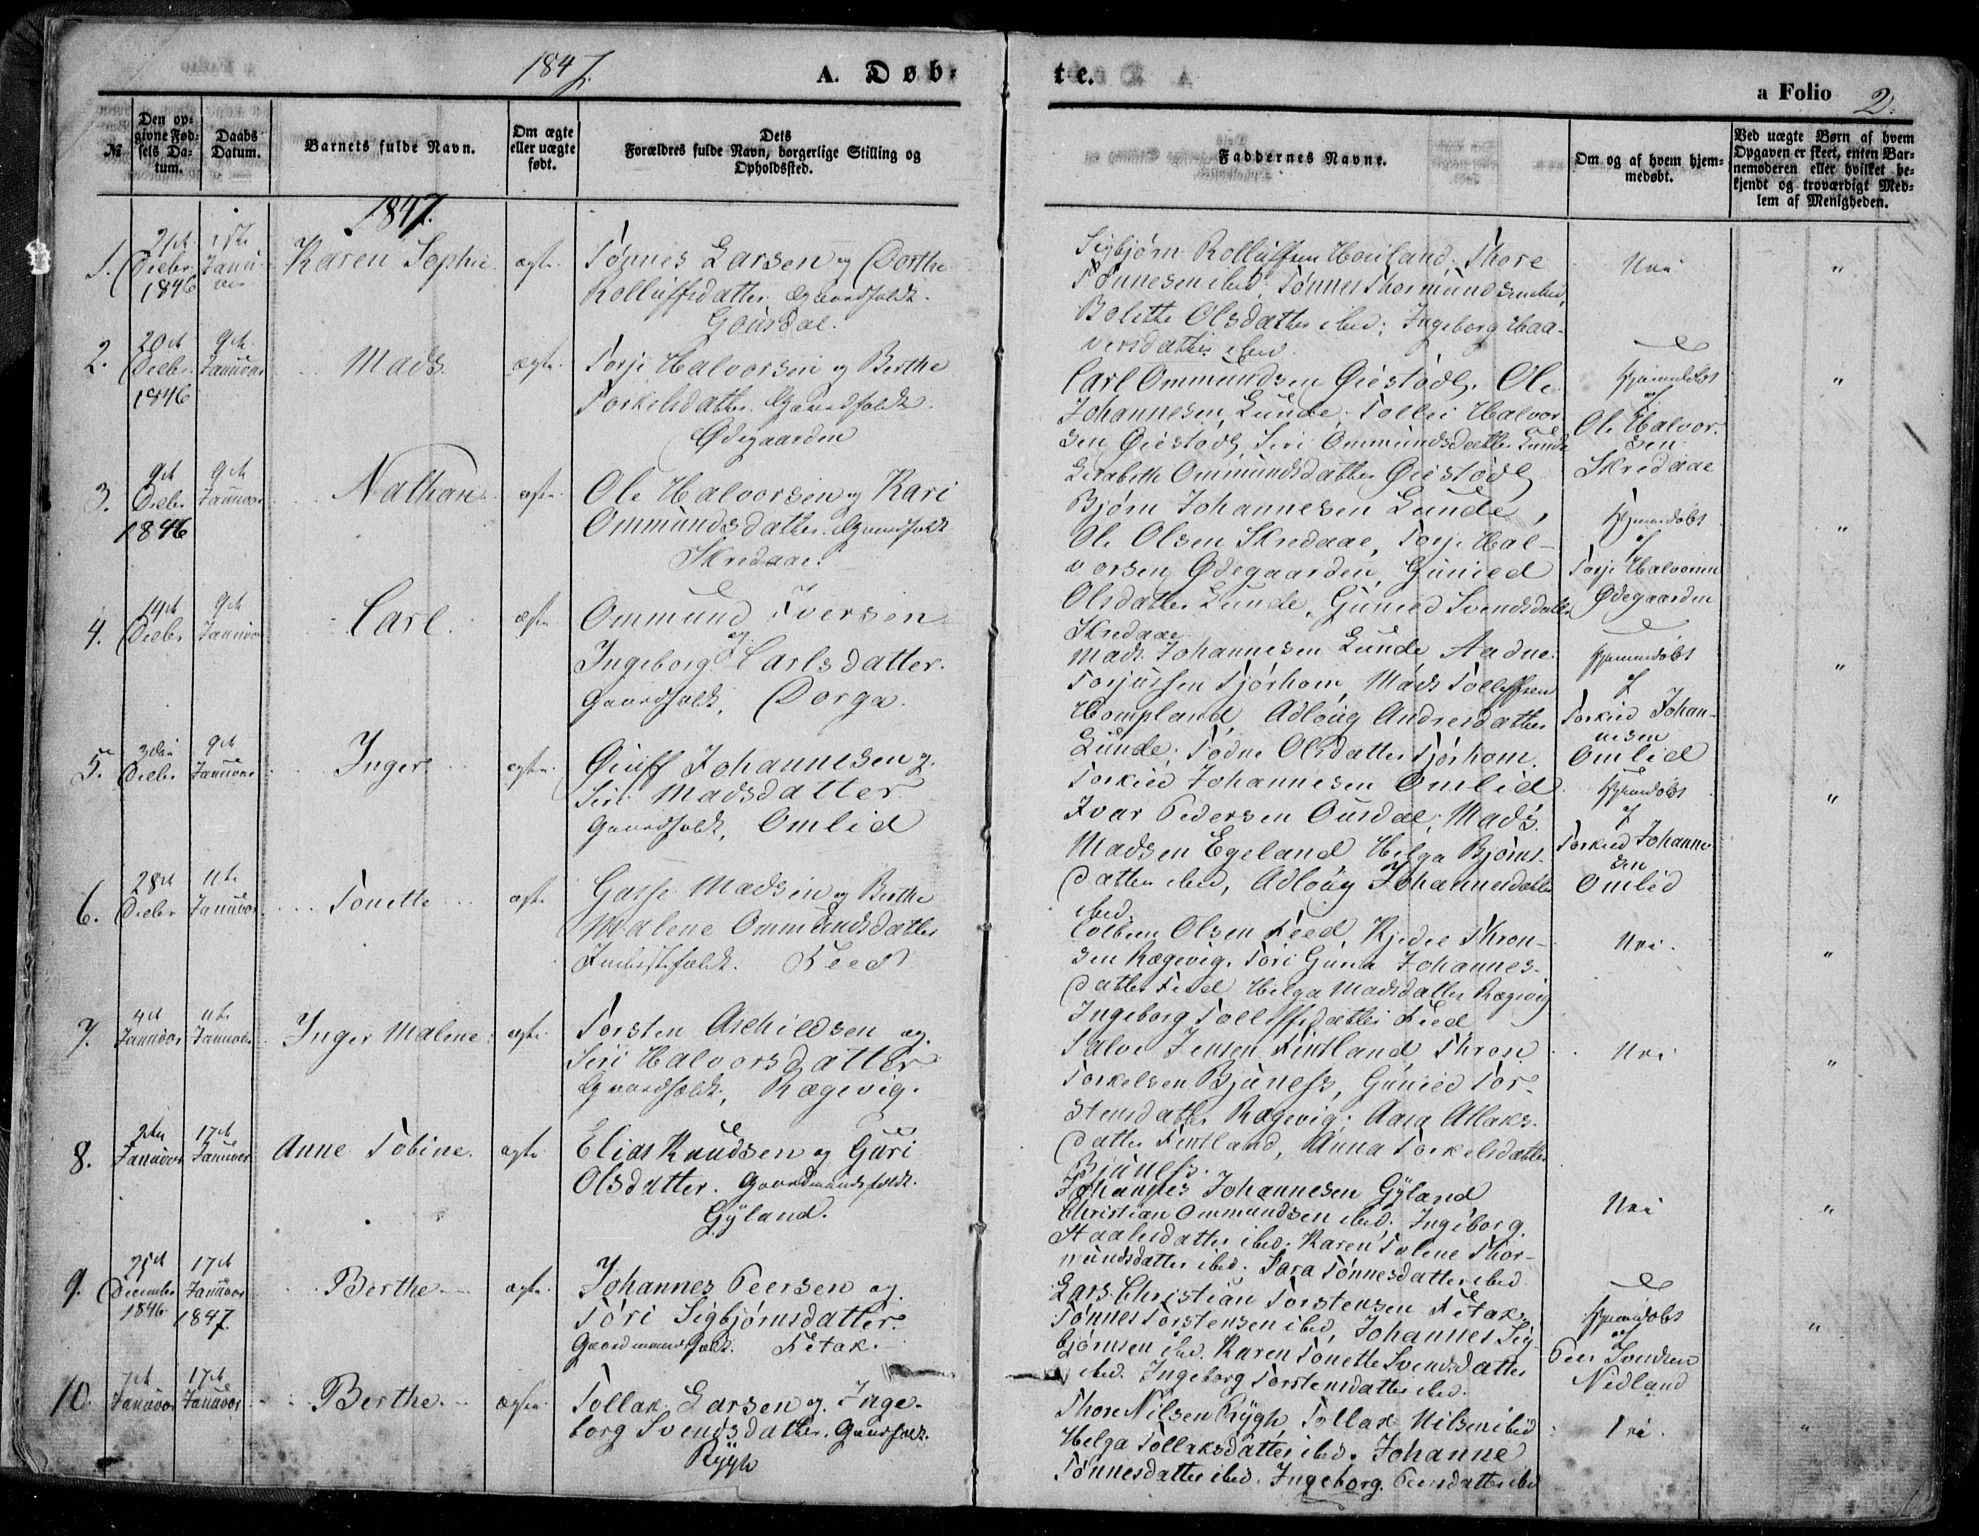 1847.
A. Døb-
te.
a Folio 2.
№
Den op-
givne Fød-
sels Da-
tum.
Daabs
Datum.
Barnets fulde Navn.
Om ægte
eller uægte
født.
Dets
Forældres fulde Navn, borgerlige Stilling og
Opholdssted.
Faddernes Navne.
Om og af hvem hjem-
medøbt.
Ved uægte Børn af hvem
Opgaven er skeet, enten Bar-
nemoderen eller hvilket be-
kjendt og troværdigt Med-
lem af Menigheden.
1847.
1. 21de Decbr 1846
1ste Janu-
Karen Sophie
ægte
Tønnes Larsen og Dorthe
Rolluffsdatter. Gaardfolk.
Gousdal.
Sigbjørn Rolluffsen Houland, Thore
Tønnesen ibid, Tønnes Thormundsen ibid,
Bolette Olsdatter ibid; Ingeborg Haa-
versdatter ibid.
Nei
"
2. 20de Decbr 1846
9de Januar
Mads.
ægte.
Torje Halvorsen og Berthe
Torkelsdatter. Gaardfolk.
Ødegaarden
Carl Ommundsen Gjestøde, Ole
Johannesen Lunde, Tollei Halvor
sen Gjestøde, Siri Ommundsdatter Lunde
Lisabeth Ommundsdatter Gjestøde
Hjemmedøbt
af
Ole Halvor-
sen
Skredaae
"
3. 9de Decbr 1846
9de Januar
Nathan
ægte.
Ole Halvorsen og Kari
Ommundsdatter. Gaardfolk
Skredaae.
Bjørn Johannesen Lunde,
Ole Olsen Skredaae, Torje Hal-
vorsen Ødegaarden, Gunild
Olsdatter Lunde, Gunild Svendsdatter
Skredaae.
Hjemmedøbt
af
Torje Halvorsen
Ødegaarden
"
4. 14de Decbr
9de Januar
Carl.
ægte
Ommund Iversen
og
Ingeborg Carlsdatter.
Gaardfolk, Dorga.
Mads Johannesen Lunde, Aadne
Torjussen Tjørhom, Mads Tolleffsen
Hompland, Adloug Andresdatter
Lunde, Tødne Olsdatter Tjørhom.
Hjemmedøbt
af
Torkild Johan-
nesen
Omlid
"
5. 3die Decbr
9de Januar
Inger
ægte.
Giuff Johannesen og
Siri Madsdatter
Gaardfolk, Omlid
Torkild Johannesen Omlid
Ivar Pedersen Ousdal, Mads
Madsen Egeland, Helga Bjørns-
datter ibid, Adloug Johannesdatter
ibid.
Hjemmedøbt
af
Torkild Johanne
sen
Omlid
"
6. 28de Decbr
11te Januar
Tonette
ægte.
Gasse Madsen og Berthe
Malene Ommundsdatter
Feed
Olsen Feed, Kjedel Thron-
sen Rægevig, Tori Guria Johannes-
datter Feed, Helga Madsdatter Rægevig
Ingeborg Tolleffsdatter Feed
Nei.
"
7. 4de Januar
11te Januar
Inger Malene
ægte
Torsten Aschildsen og
Siri Halvorsdatter
Gaardfolk, Rægevig.
Salve Jensen Fintland, Thron
Torkelsen Bjuness, Gunild Tor-
stensdatter Rægevig, Aasa Atlaks-
datter Fintland, Anna Torkelsdatter
Bjuness.
Nei
"
8. 2den Januar
17de Januar
Anne Tobine.
ægte
Elias Knudsen og Guri
Olsdatter. Gaardmandsfolk.
Gyland.
Johannes Johannesen Gyland
Christian Ommundsen ibid, Ingeborg
Staalesdatter ibid. Karen Tolene Thor-
mundsdatter ibid. Sara Tønnesdatter ibid.
Nei
"
9. 25de December 1846
17de Januar 1847.
Berthe
ægte
Johannes Peersen og
Tori Sigbjørnsdatter.
Gaardmandsfolk. Fetak.
Lars Christian Torstensen Fetak,
Tønnes Torstensen ibid, Johannes Sig-
bjørnsen ibid. Karen Tonette Svendsdatter
ibid. Ingeborg Torstensdatter ibid.
Hjemmedøbt
af
Peer Svendsen
Nedland
"
10. 7de Januar
17de Januar
Berthe
ægte.
Tollak Larsen og Inge-
borg Svendsdatter, Gaardfolk.
Rygh
Thore Nilsen Rygh, Tollak Nilsen ibid
Helga Tollaksdatter ibid. Johanne
Tønnesdatter ibid. Ingeborg Peersdatter ibid
Nei.
"